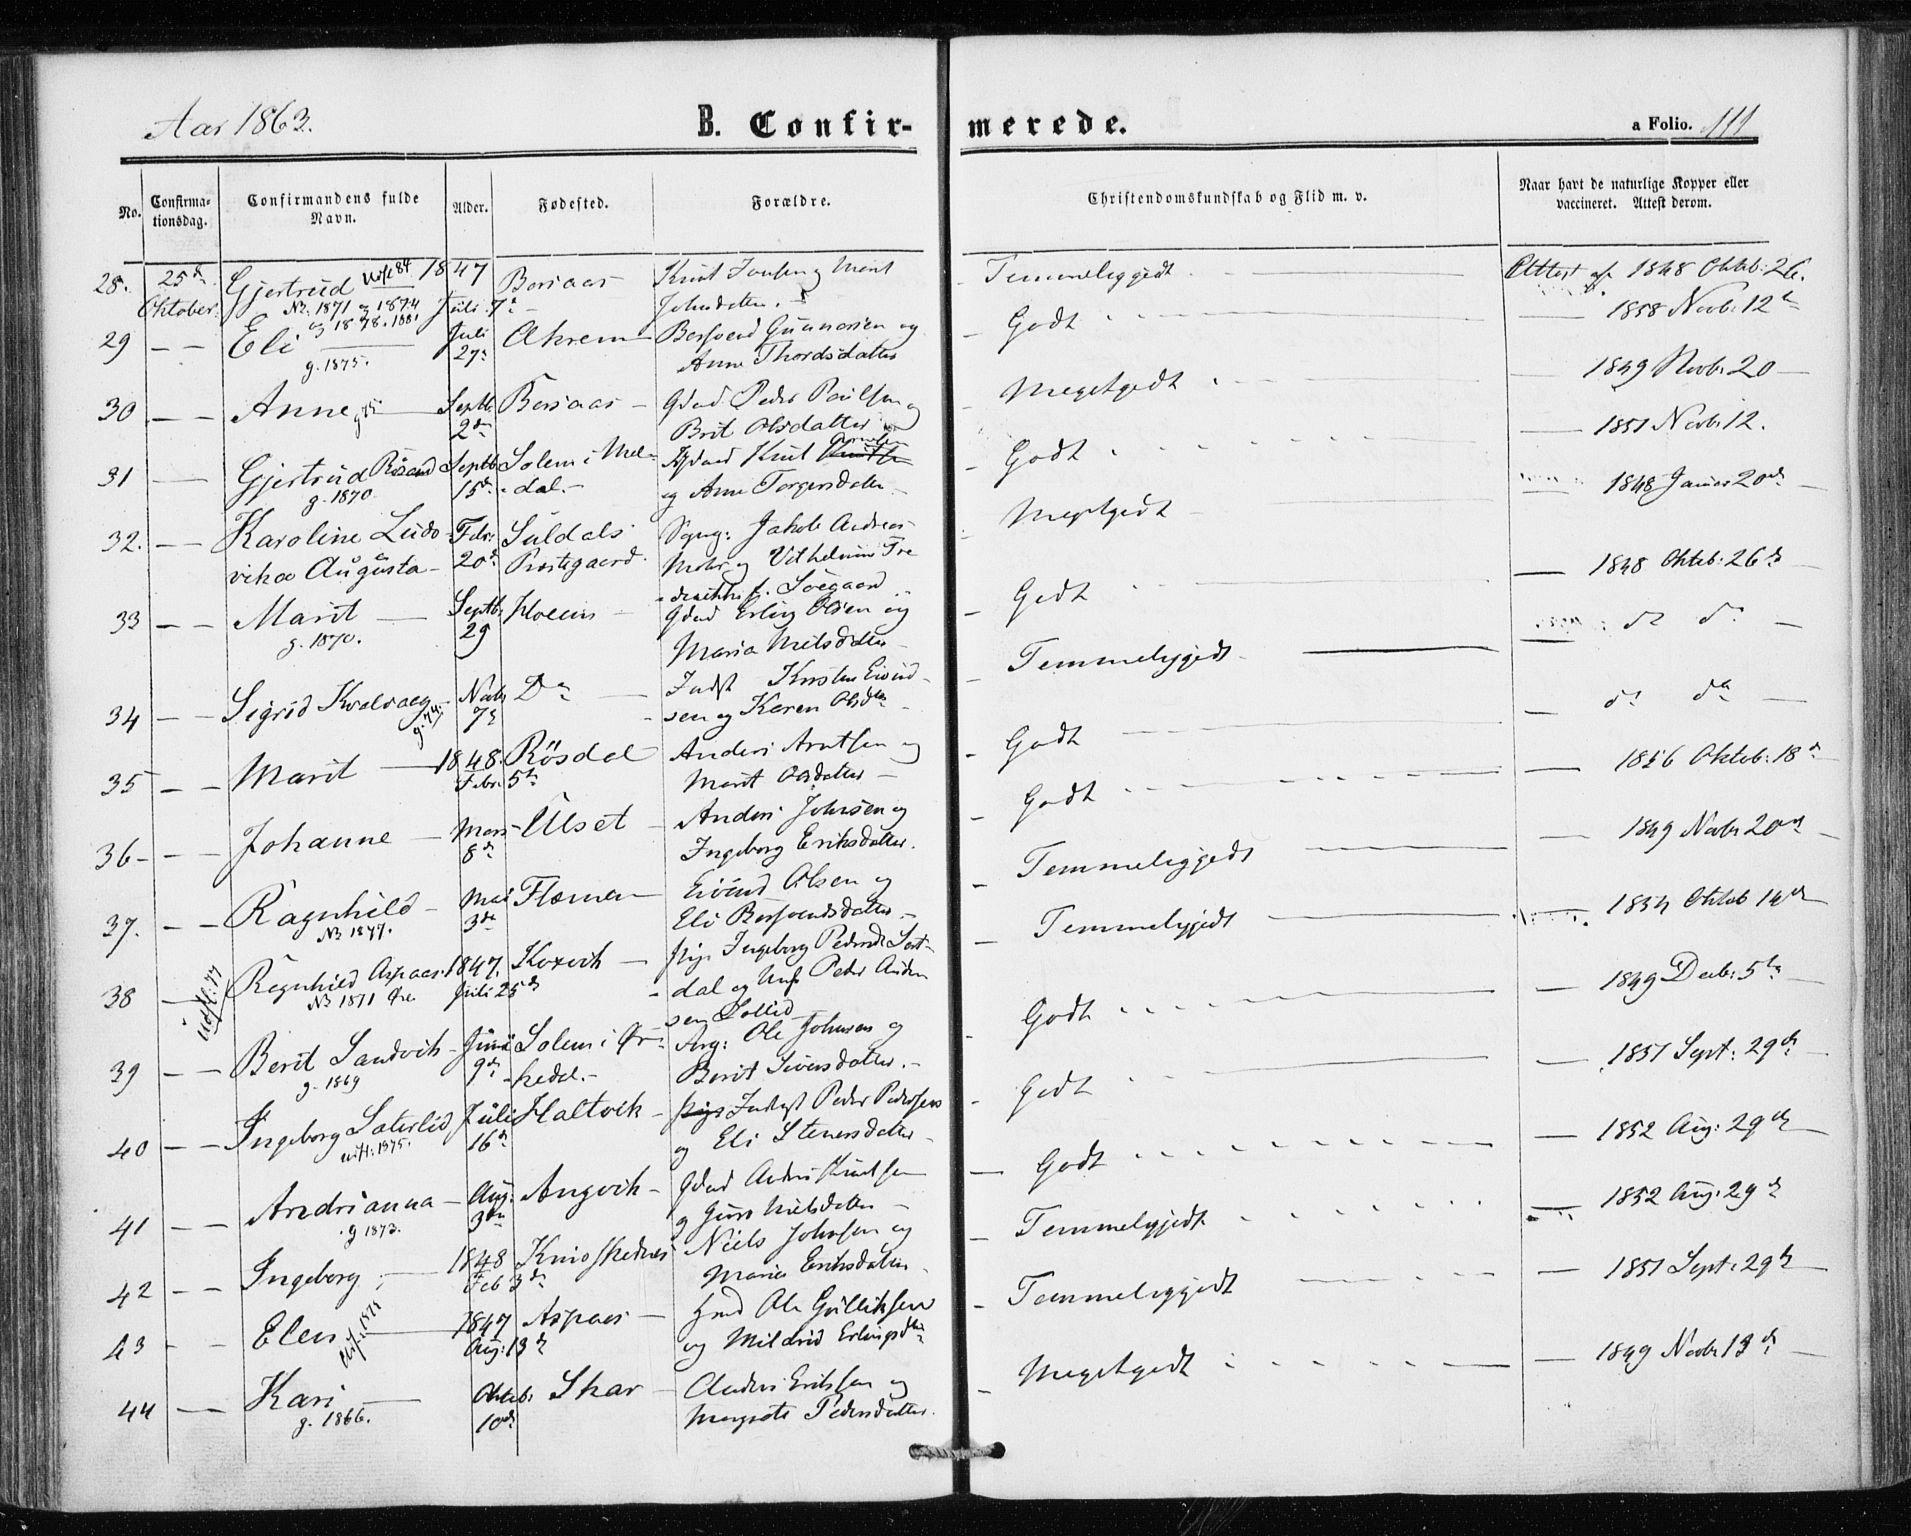 Aar 1863.
B. Confirmerede.
a Folio. 111
No.
Confirmationsdag.
Confirmandens fulde Navn.
Alder.
Fødested.
Forældre.
Christendomskundskab og Flid m. v.
Naar havt de naturlige Kopper eller vaccineret. Attest derom.
28. 25de Gjertrud 1847 Børsaas Knut Jonsen og Marit Temmeliggodt Attest af 1848 Oktob: 26.
Oktober. No. 1871 og 1874 Juli 7de Johnsdatter.
og 1878. 1881
29 Eli Juli Ahrem Bersvend Gunnarsen og Godt 1858 Novb: 12te
g. 1875. 27de Anne Thordsdatter
30 Anne Septb. Børsaas Gdmd Peder Paulsen og Megetgodt 1849 Novb. 20
2den Brit Olsdatter
31 Gjertrud Septb Solem i Mel- Knut Godt 1851 Novb. 12.
g. 1870 15de dal. og Anne Torgersdatter
32. Karoline Ludo- Febr Suldals Jakob Andreas Megetgodt 1848 Januar 20de
vika Augusta 20de Præstegaard Mohr og Vilhelmine Fre-
derikke f. Søegaard
33 Marit Septb. Hoem Gdmd Erling Olsen og Godt 1848 Oktob: 26de
g. 1870. 29 Maria Nielsdatter
34 Sigrid Kvalvaag Novb. Do Indst Kristen Eivind- Temmeliggodt do do
g. 74. 7de sen og Karen Olsdtr
35 Marit 1848. Rösdal Anders Arntsen og Godt do do
Febr. 5te Marit Olsdatter
36 Johanne Mars Ulset Anders Johnsen og Godt 1856 Oktob: 18de
8de Ingeborg Eriksdatter.
37. Ragnhild Mai Flemmen Eivind Olsen og Temmeliggodt 1849 Novb 20de
No 1877. 3de Eli Bersvendsdatter
38 Ragnhild Aspaas 1847. Korsvik Pige Ingeborg Pedersdtr Temmeliggodt 1854 Oktob 14de
No 1871 Øre Juli 25de dal og Ungk Peder Anders-
udfl: 77 sen Sollid
39 Berit Sandvik Juni Solem i Ør- Arb: Ole Johnsen og Godt 1849 Decb: 5te
g. 1869 9de kedal. Berit Siversdatter.
40 Ingeborg Sæterlid Juli Haltvik Indergst Peder Pedersen Godt 1851 Sept: 29de
utfl: 1875. 16de og Eli Stenersdatter
41 Andrianna Aug. Angvik Gdmd Anders Knutsen Godt 1852 Aug: 29de
g 1873. 3de og Guro Nielsdatter
42 Ingeborg 1848 Niels Johnsen og Temmeliggodt 1852 Aug: 29de
Feb 3de Maria Eriksdatter
43 Elen 1847 Aspaas Hmd Ole Gulliksen Temmeliggodt 1851 Sept: 29de
Utfl. 1875 Aug: 13de og Mildrid Erlingsdtr
44 Kari Oktob: Skar Anders Eriksen og Megetgodt 1849 Novb 13de
g. 1866. 10de Margrete Pedersdatter.